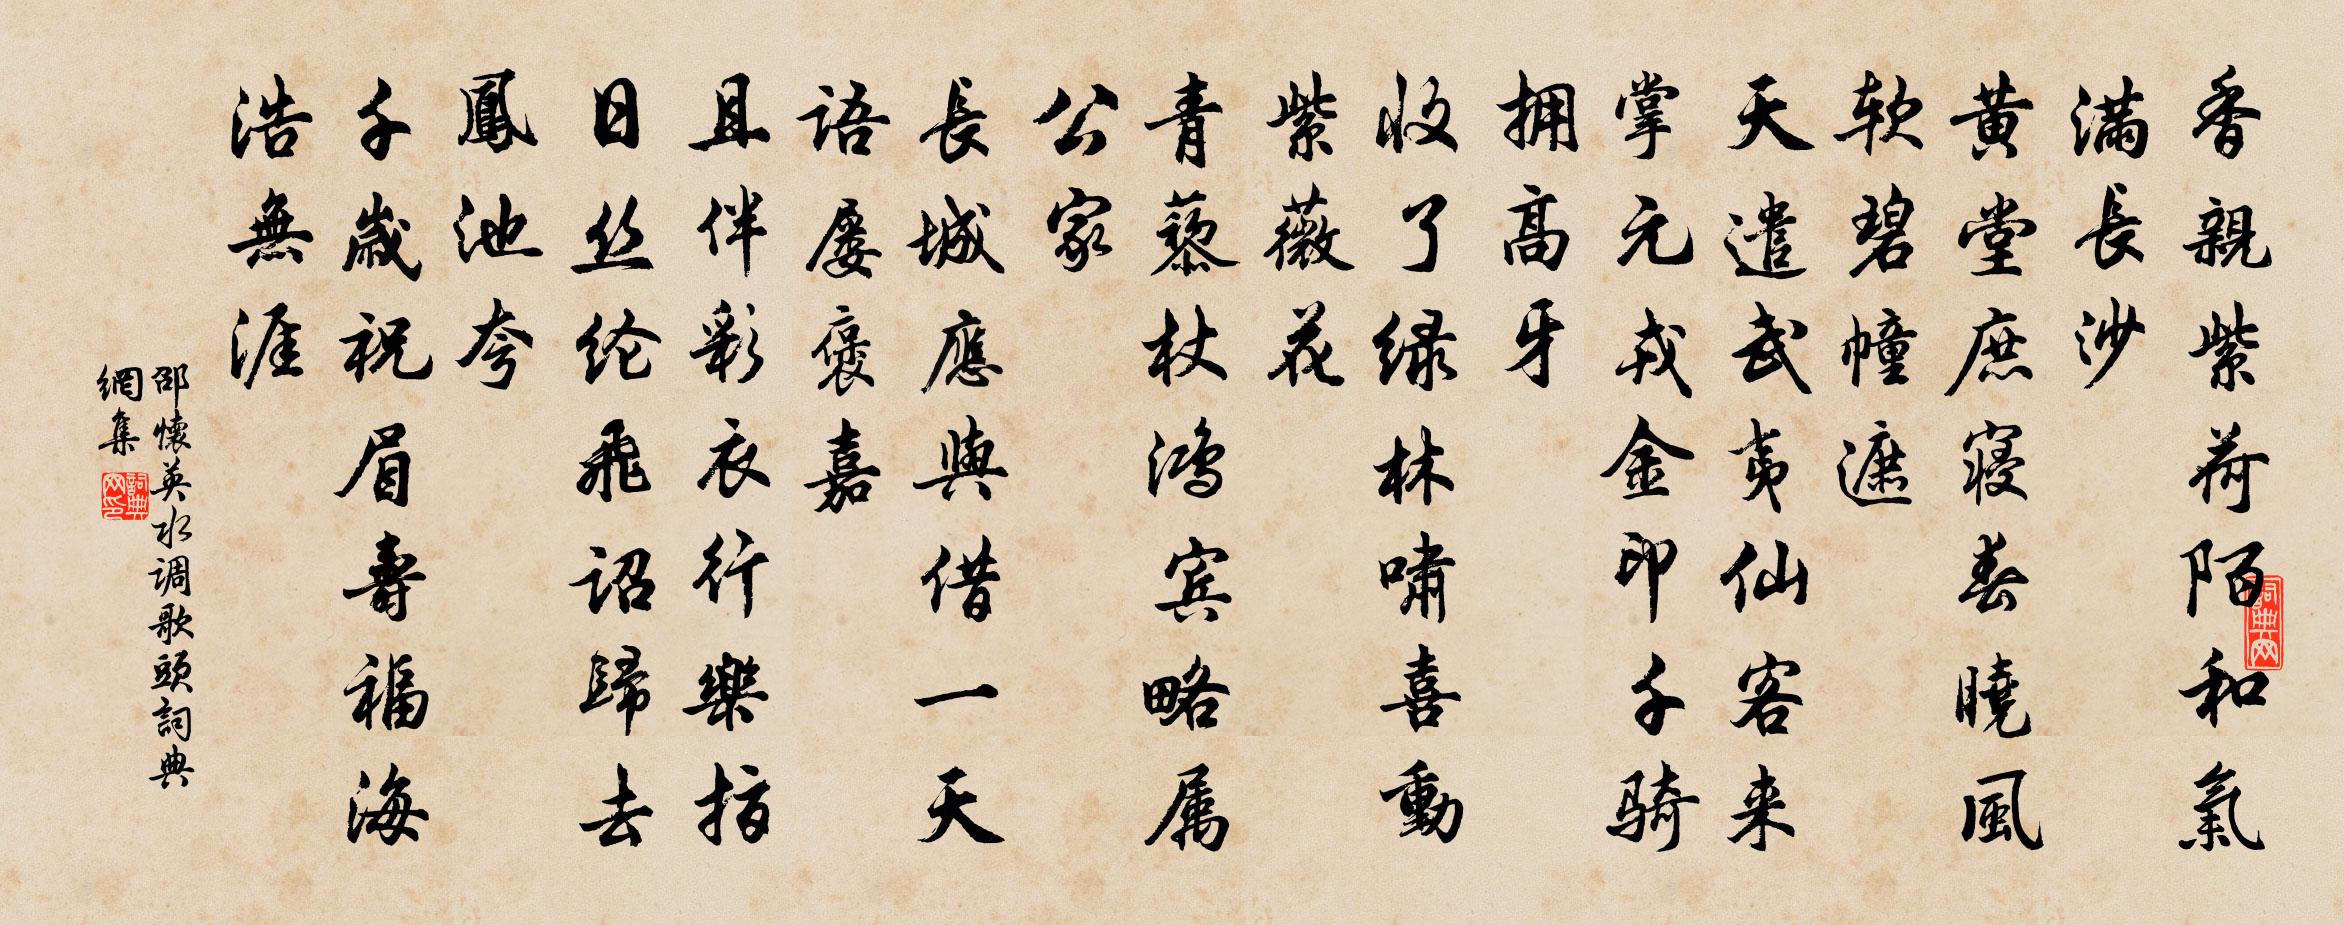 香親紫荷陌和氣
滿長沙
黄堂庶寝春曉風
软碧幢遮
天遣武夷仙客来
掌元戎金印千骑
拥高牙
收了绿林啸喜動
紫薇花
青藜杖鸿宾略属
公家
長城應與借一天
语屡褒嘉
且伴彩衣行樂指
日丝纶飛诏歸去
鳳池夸
千歲祝眉壽福海
浩無涯
邵懷英水调歌頭詞典
網集
詞典网
詞典网印